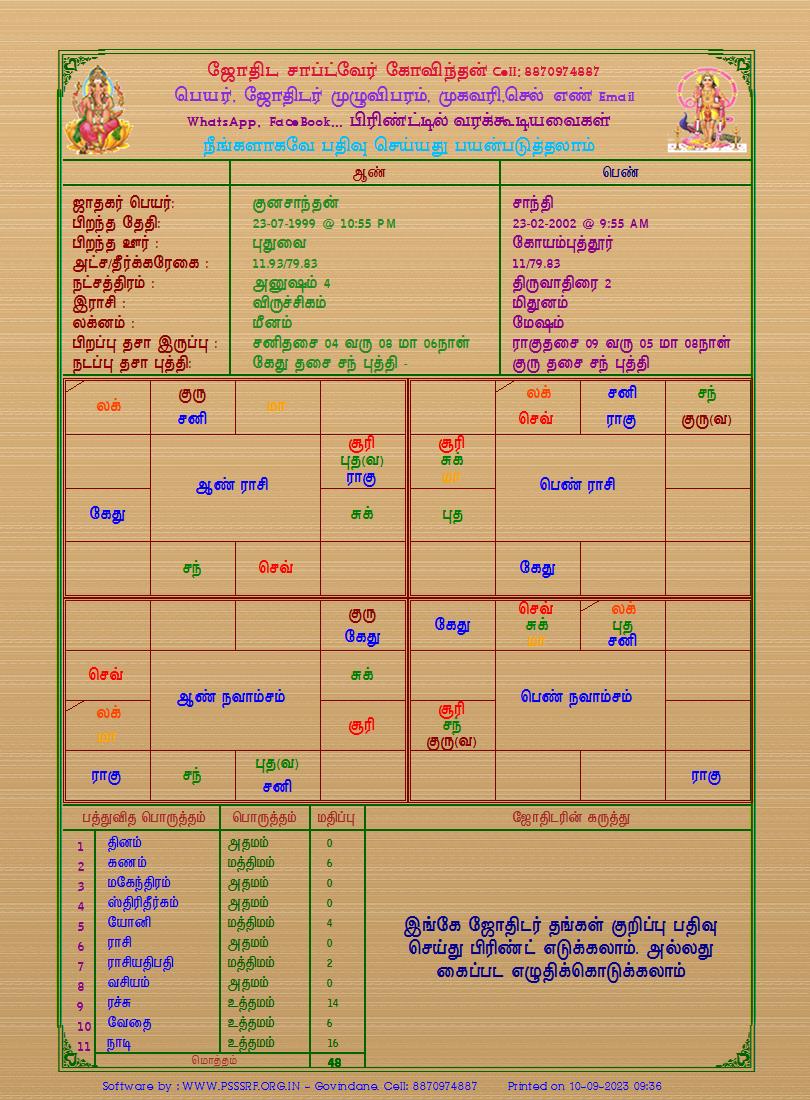 ஜோதிட சாப்ட்வேர் கோவிந்தன் Cell: 8870974887
பெயர், ஜோதிடர் முழுவிபரம், முகவரி,செல் எண் Email
WhatsApp, FaceBook... பிரிண்ட்டில் வரக்கூடியவைகள்
நீங்களாகவே பதிவு செய்யது பயன்படுத்தலாம்
ஆண் பெண்
ஜாதகர் பெயர்: குனசாந்தன் சாந்தி
பிறந்த தேதி: 23-07-1999 @ 10:55 PM 23-02-2002 @ 9:55 AM
பிறந்த ஊர் : புதுவை கோயம்புத்தூர்
அட்ச/தீர்க்கரேகை : 11.93/79.83 11/79.83
நட்சத்திரம் : அனுஷம் 4 திருவாதிரை 2
இராசி : விருச்சிகம் மிதுனம்
லக்னம் : மீனம் மேஷம்
பிறப்பு தசா இருப்பு : சனிதசை 04 வரு 08 மா 06நாள் ராகுதசை 09 வரு 05 மா 08நாள்
நடப்பு தசா புத்தி: கேது தசை சந் புத்தி - குரு தசை சந் புத்தி
லக் குரு சனி மா லக் செவ் சனி ராகு சந் குரு(வ)
சூரி புத(வ) ராகு சூரி சுக் மா
ஆண் ராசி பெண் ராசி
கேது சுக் புத
சந் செவ் கேது
குரு கேது கேது செவ் சுக் மா லக் புத சனி
செவ் சுக்
ஆண் நவாம்சம் பெண் நவாம்சம்
லக் மா சூரி சூரி சந் குரு(வ)
ராகு சந் புத(வ) சனி ராகு
பத்துவித பொருத்தம் பொருத்தம் மதிப்பு ஜோதிடரின் கருத்து
1 தினம் அதமம் 0
2 கணம் மத்திமம் 6
3 மகேந்திரம் அதமம் 0
4 ஸ்திரிதீர்கம் அதமம் 0
5 யோனி மத்திமம் 4
6 ராசி அதமம் 0
7 ராசியதிபதி மத்திமம் 2
8 வசியம் அதமம் 0
9 ரச்சு உத்தமம் 14
10 வேதை உத்தமம் 6
11 நாடி உத்தமம் 16
மொத்தம் 48
இங்கே ஜோதிடர் தங்கள் குறிப்பு பதிவு
செய்து பிரிண்ட் எடுக்கலாம். அல்லது
கைப்பட எழுதிக்கொடுக்கலாம்
Software by : WWW.PSSSRF.ORG.IN - Govindane. Cell: 8870974887 Printed on 10-09-2023 09:36